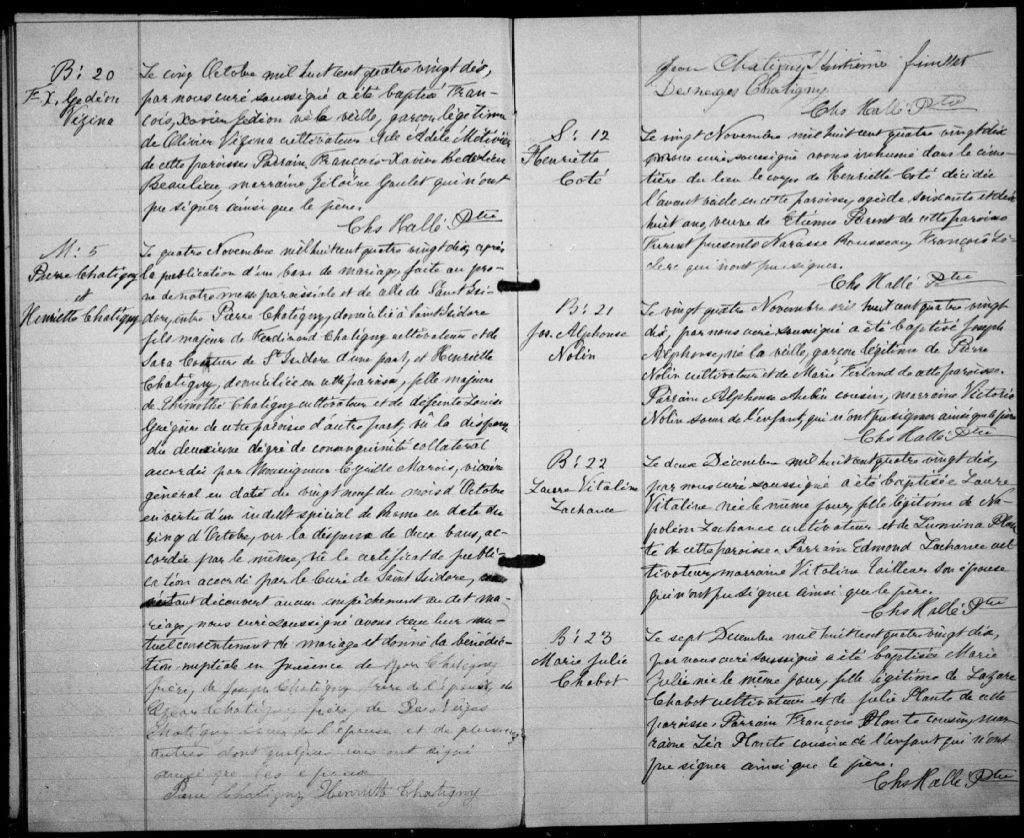 B: 20
F. X. Gedéon
Vézina
Le cinq Octobre mil huit cent quatre vingt dix,
par nous curé soussigné a été baptisé Fran-
cois, Xavier, Gedéon né la veille, garçon légitime
de Olivier Vézina cultivateur et de Adèle Métivier
de cette paroisse. Parrain, François-Xavier
Beaulieu, marraine Goulet qui n'ont
pu signer ainsi que le père.
Chs Hallé Ptre
M: 5
Pierre Chatigny
et
Henriette Chatigny
Le quatre Novembre mil huit cent quatre vingt dix, après
la publication d'un banc de mariage, faite au prô-
ne de notre messe paroissiale et de celle de Saint Isi-
dore, entre Pierre Chatigny, domicilié à Saint Isidore
fils majeur de Ferdinand Chatigny cultivateur et de
Sara Couture de St Isidore d'une part, et Henriette
Chatigny, domiciliée en cette paroisse, fille majeure
de Chatigny cultivateur et de défeinte Louise
de cette paroisse d'autre part, vû la dispense
du deuxième dégré de consanguinité collateral
accordée par Monseigneur Cyrille Marois, vicaire
général en date du vingt neuf du mois d'Octobre
en vertu d'un indult spécial de Rome en date du
cinq d'Octobre, vu la dispense de deux bans, ac-
cordée par le même, vû le certificat de publi-
cation accordé par le Curé de Saint Isidore,
n'étant découvert aucun empêchement au dit ma-
riage, nous curé soussigné avons reçu leur mu-
tuel consentement de mariage et donné la bénédic-
tion nuptiale en présence de Chatigny
frère, de Joseph Chatigny frère de l'époux, de
Chatigny frère, de Des Neiges
Chatigny soeur de l'épouse et de plusieurs
autres dont quelques uns ont signé
les époux
Pierre Chatigny Henriette Chatigny
Jean Chatigny Huitième feuillet
Desneiges Chatigny
Chs Hallé Ptre
S: 12
Henriette
Coté
Le vingt Novembre mil huit cent quatre vingt dix
par nous curé soussigné avons inhumé dans le cime-
tière du lieu le corps de Henriette Coté décédée
l'avant veille en cette paroisse, agée de soixante et dix
huit ans, veuve de Etienne Parent de cette paroisse
Furent présents Narcisse Rousseau, François Le-
clerc qui n'ont pu signer.
Chs Hallé Ptre
B: 21
Jos. Alphonse
Nolin
Le vingt quatre Novembre mil huit cent quatre vingt
dix, par nous curé soussigné a été baptisé Joseph
Alphonse, né la veille, garçon légitime de Pierre
Nolin cultivateur et de Marie Ferland de cette paroisse.
Parrain Alphonse Aubin cousin, marraine Victorie
Nolin soeur de l'enfant, qui n'ont pu signer ainsi que le père
Chs Hallé Ptre
B: 22
Laure Vitaline
Lachance
Le deux Décembre mil huit cent quatre vingt dix,
par nous curé soussigné a été baptisée Laure
Vitaline née le même jour, fille légitime de Na-
poléon Lachance cultivateur et de Lumina Plan-
te de cette paroisse. Parrain Edmond Lachance cul-
tivateur, marraine Vitaline son épouse
qui n'ont pu signer ainsi que le père.
Chs Hallé Ptre
B: 23
Marie Julie
Chabot
Le sept Décembre mil huit cent quatre vingt dix,
par nous curé soussigné a été baptisée Marie
Julie née le même jour, fille légitime de Lazare
Chabot cultivateur et de Julie Plante de cette
paroisse. Parrain François Plante cousin, mar-
raine Léa Plante cousine de l'enfant qui n'ont
pu signer ainsi que le père.
Chs Hallé Ptre